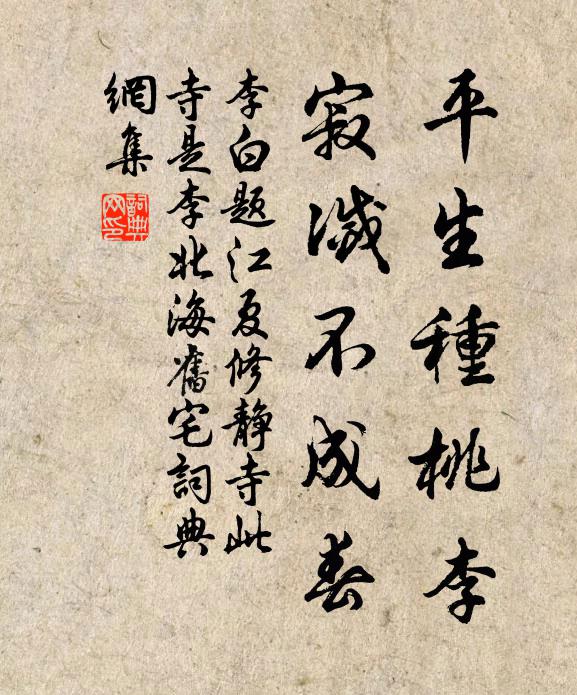 平生種桃李
寂滅不成春
李白題江夏修静寺此
寺是李北海舊宅詞典
網集
詞典
网印